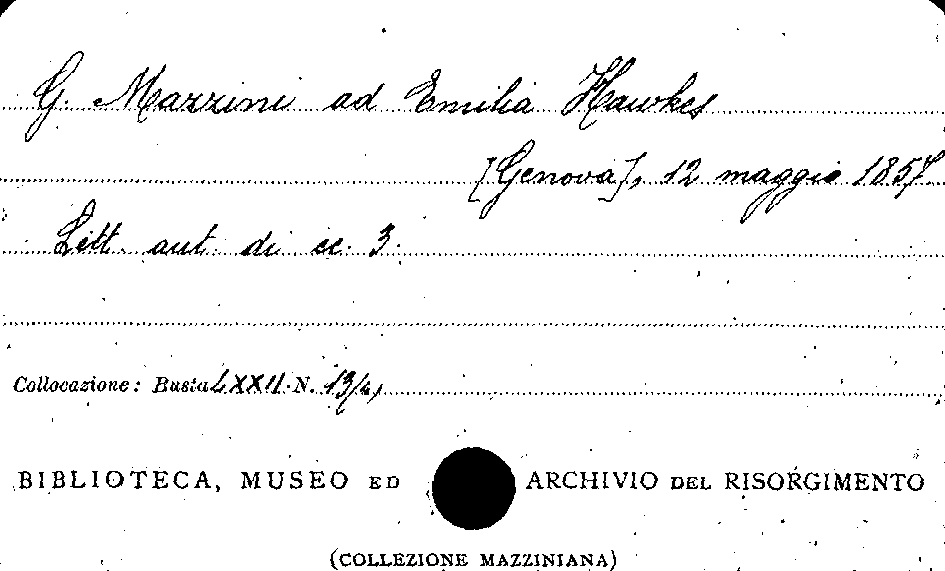 G. Mazzini ad Emilia Hawkes
[Genova], 12 maggio 1857.
Lett. aut. di cc. 3.
Collocazione: Busta LXXII N.
BIBLIOTECA, MUSEO ED ARCHIVIO DEL RISORGIMENTO
(COLLEZIONE MAZZINIANA)